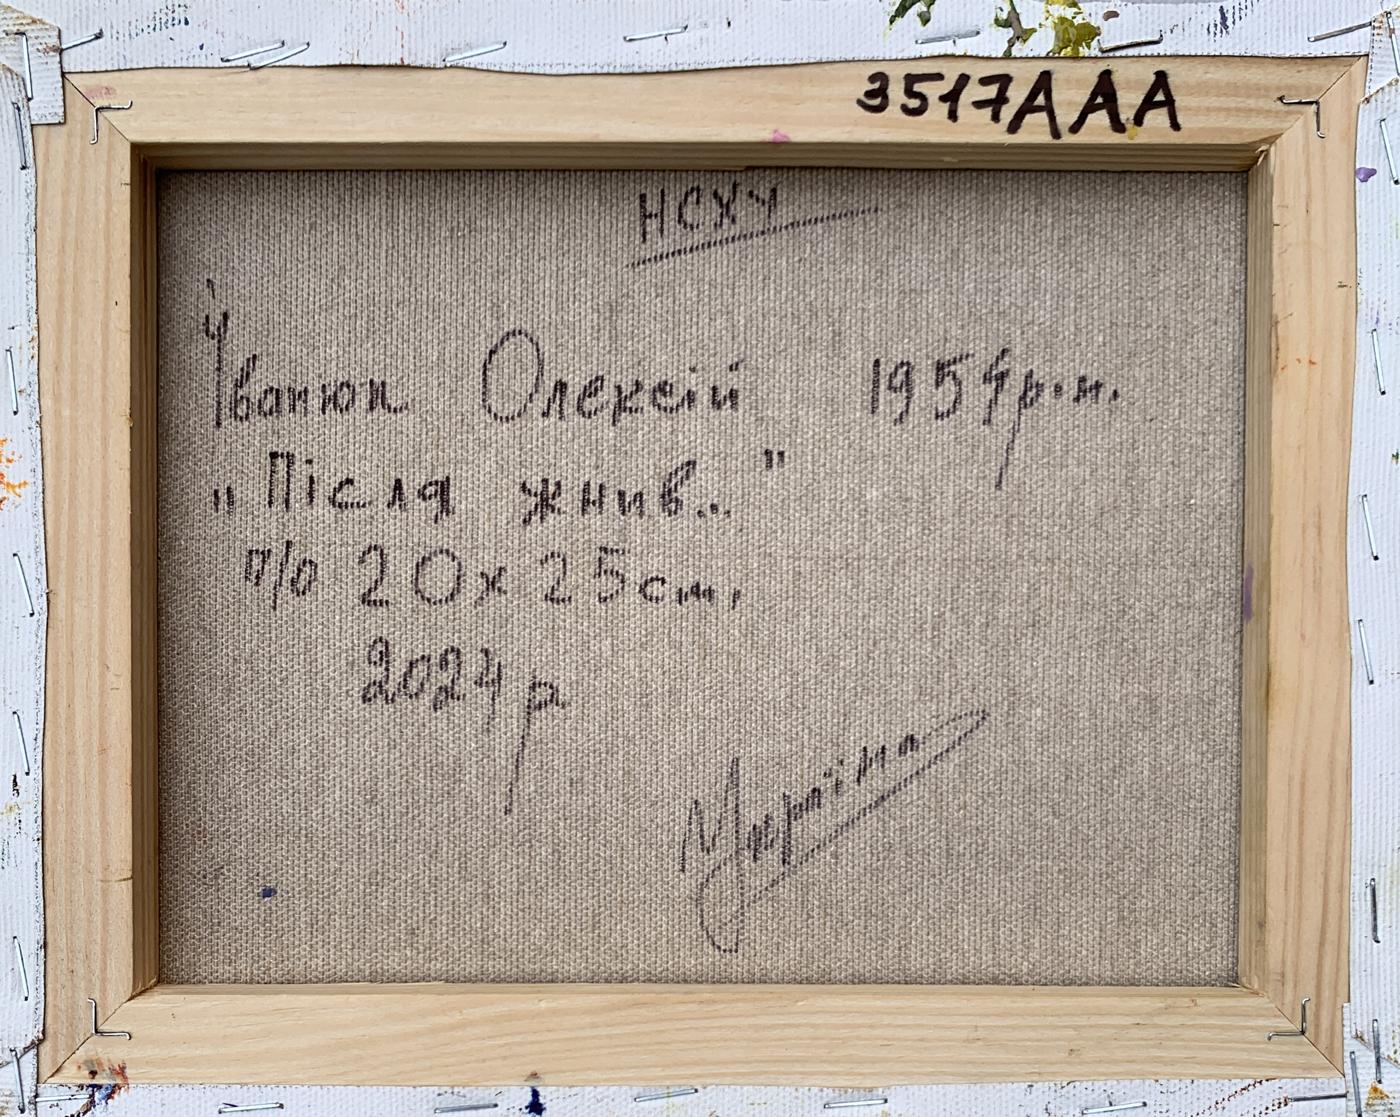 3517ААА
НСХУ
Іванюк Олексій 1954р.н.
„Після жнив..."
п/о 20х25см,
2024р
Україна